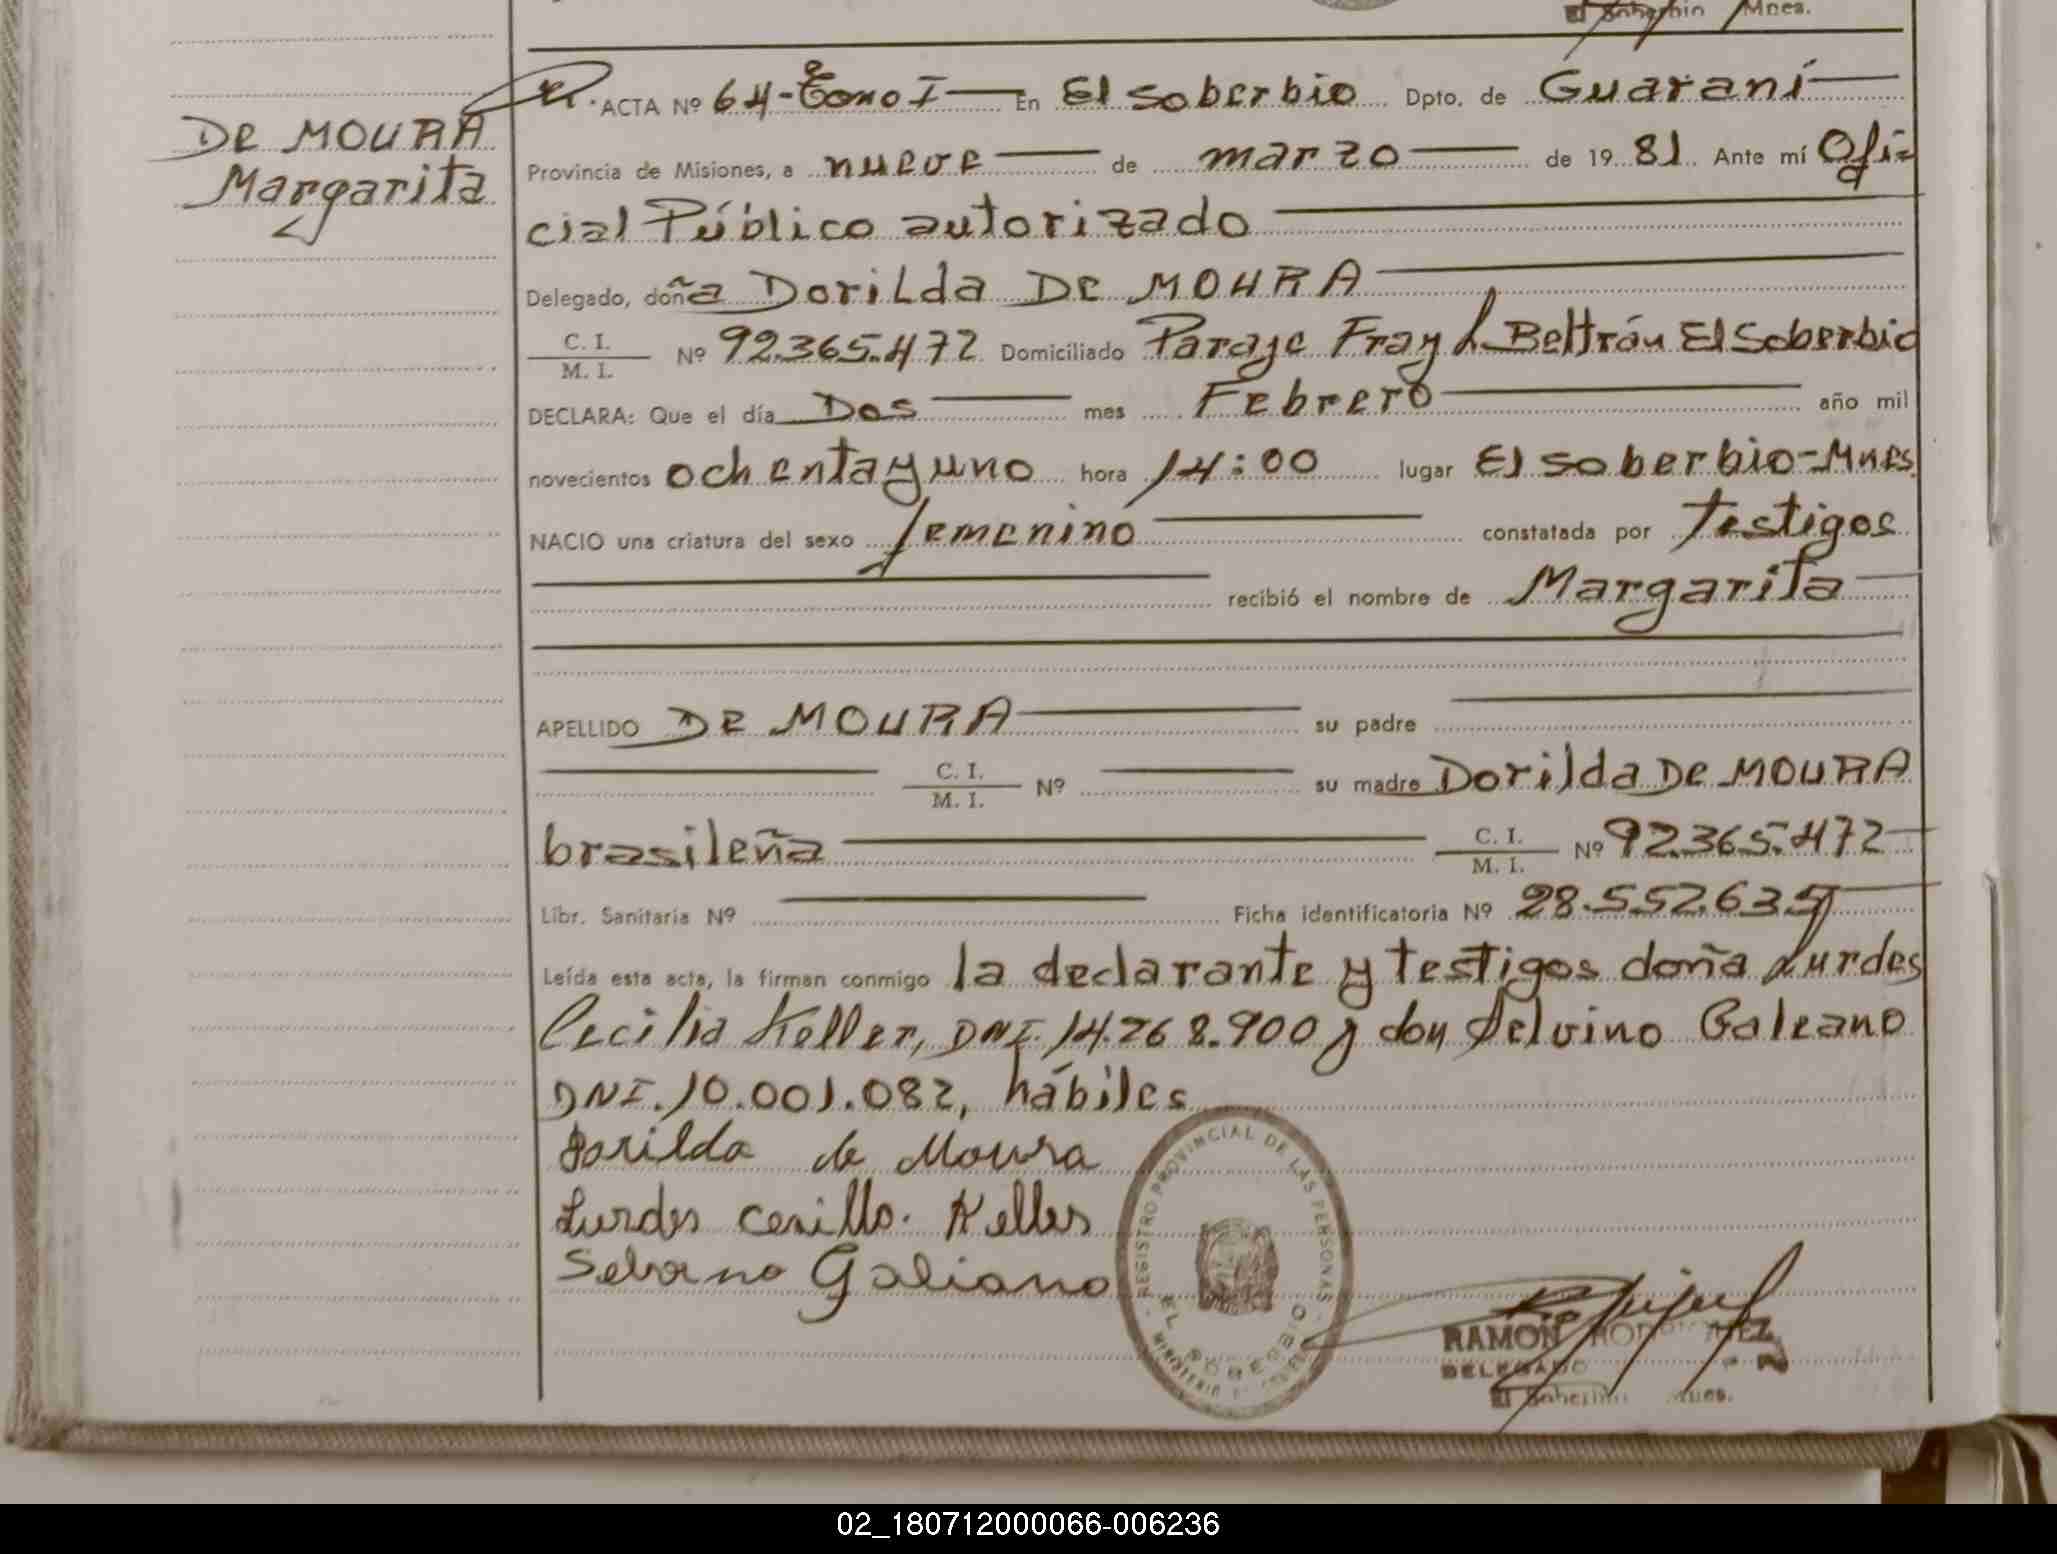 El Soberbio Mnes.
ACTA Nº 64-Tomo I En El soberbio Dpto. de Guaraní
DE MOURA
Margarita
Provincia de Misiones, a nueve de marzo de 1981. Ante mí Ofi=
cial Público autorizado
Delegado, doña Dorilda DE MOURA
C. I.
M. I.
Nº 92.365.472 Domiciliado Paraje Fray L. Beltrán El Soberbio
DECLARA: Que el día Dos mes Febrero año mil
novecientos ochenta y uno hora 14:00 lugar El soberbio-Mnes.
NACIO una criatura del sexo femenino constatada por Testigos
recibió el nombre de Margarita
APELLIDO DE MOURA su padre
C. I.
M. I.
Nº su madre Dorilda DE MOURA
brasileña C. I.
M. I.
Nº 92.365.472
Libr. Sanitaria Nº Ficha identificatoria Nº 28.552.635
Leída esta acta, la firman conmigo la declarante y testigos doña Lurdes
Cecilia Keller, DNI. 14.268.900 y don Selvino Galeano
DNI. 10.001.082, hábiles
Dorilda de Moura
Lurdes Keller
Galiano
REGISTRO PROVINCIAL DE LAS PERSONAS
EL SOBERBIO
RAMON
DELEGADO
El Soberbio Mnes.
02_180712000066-006236